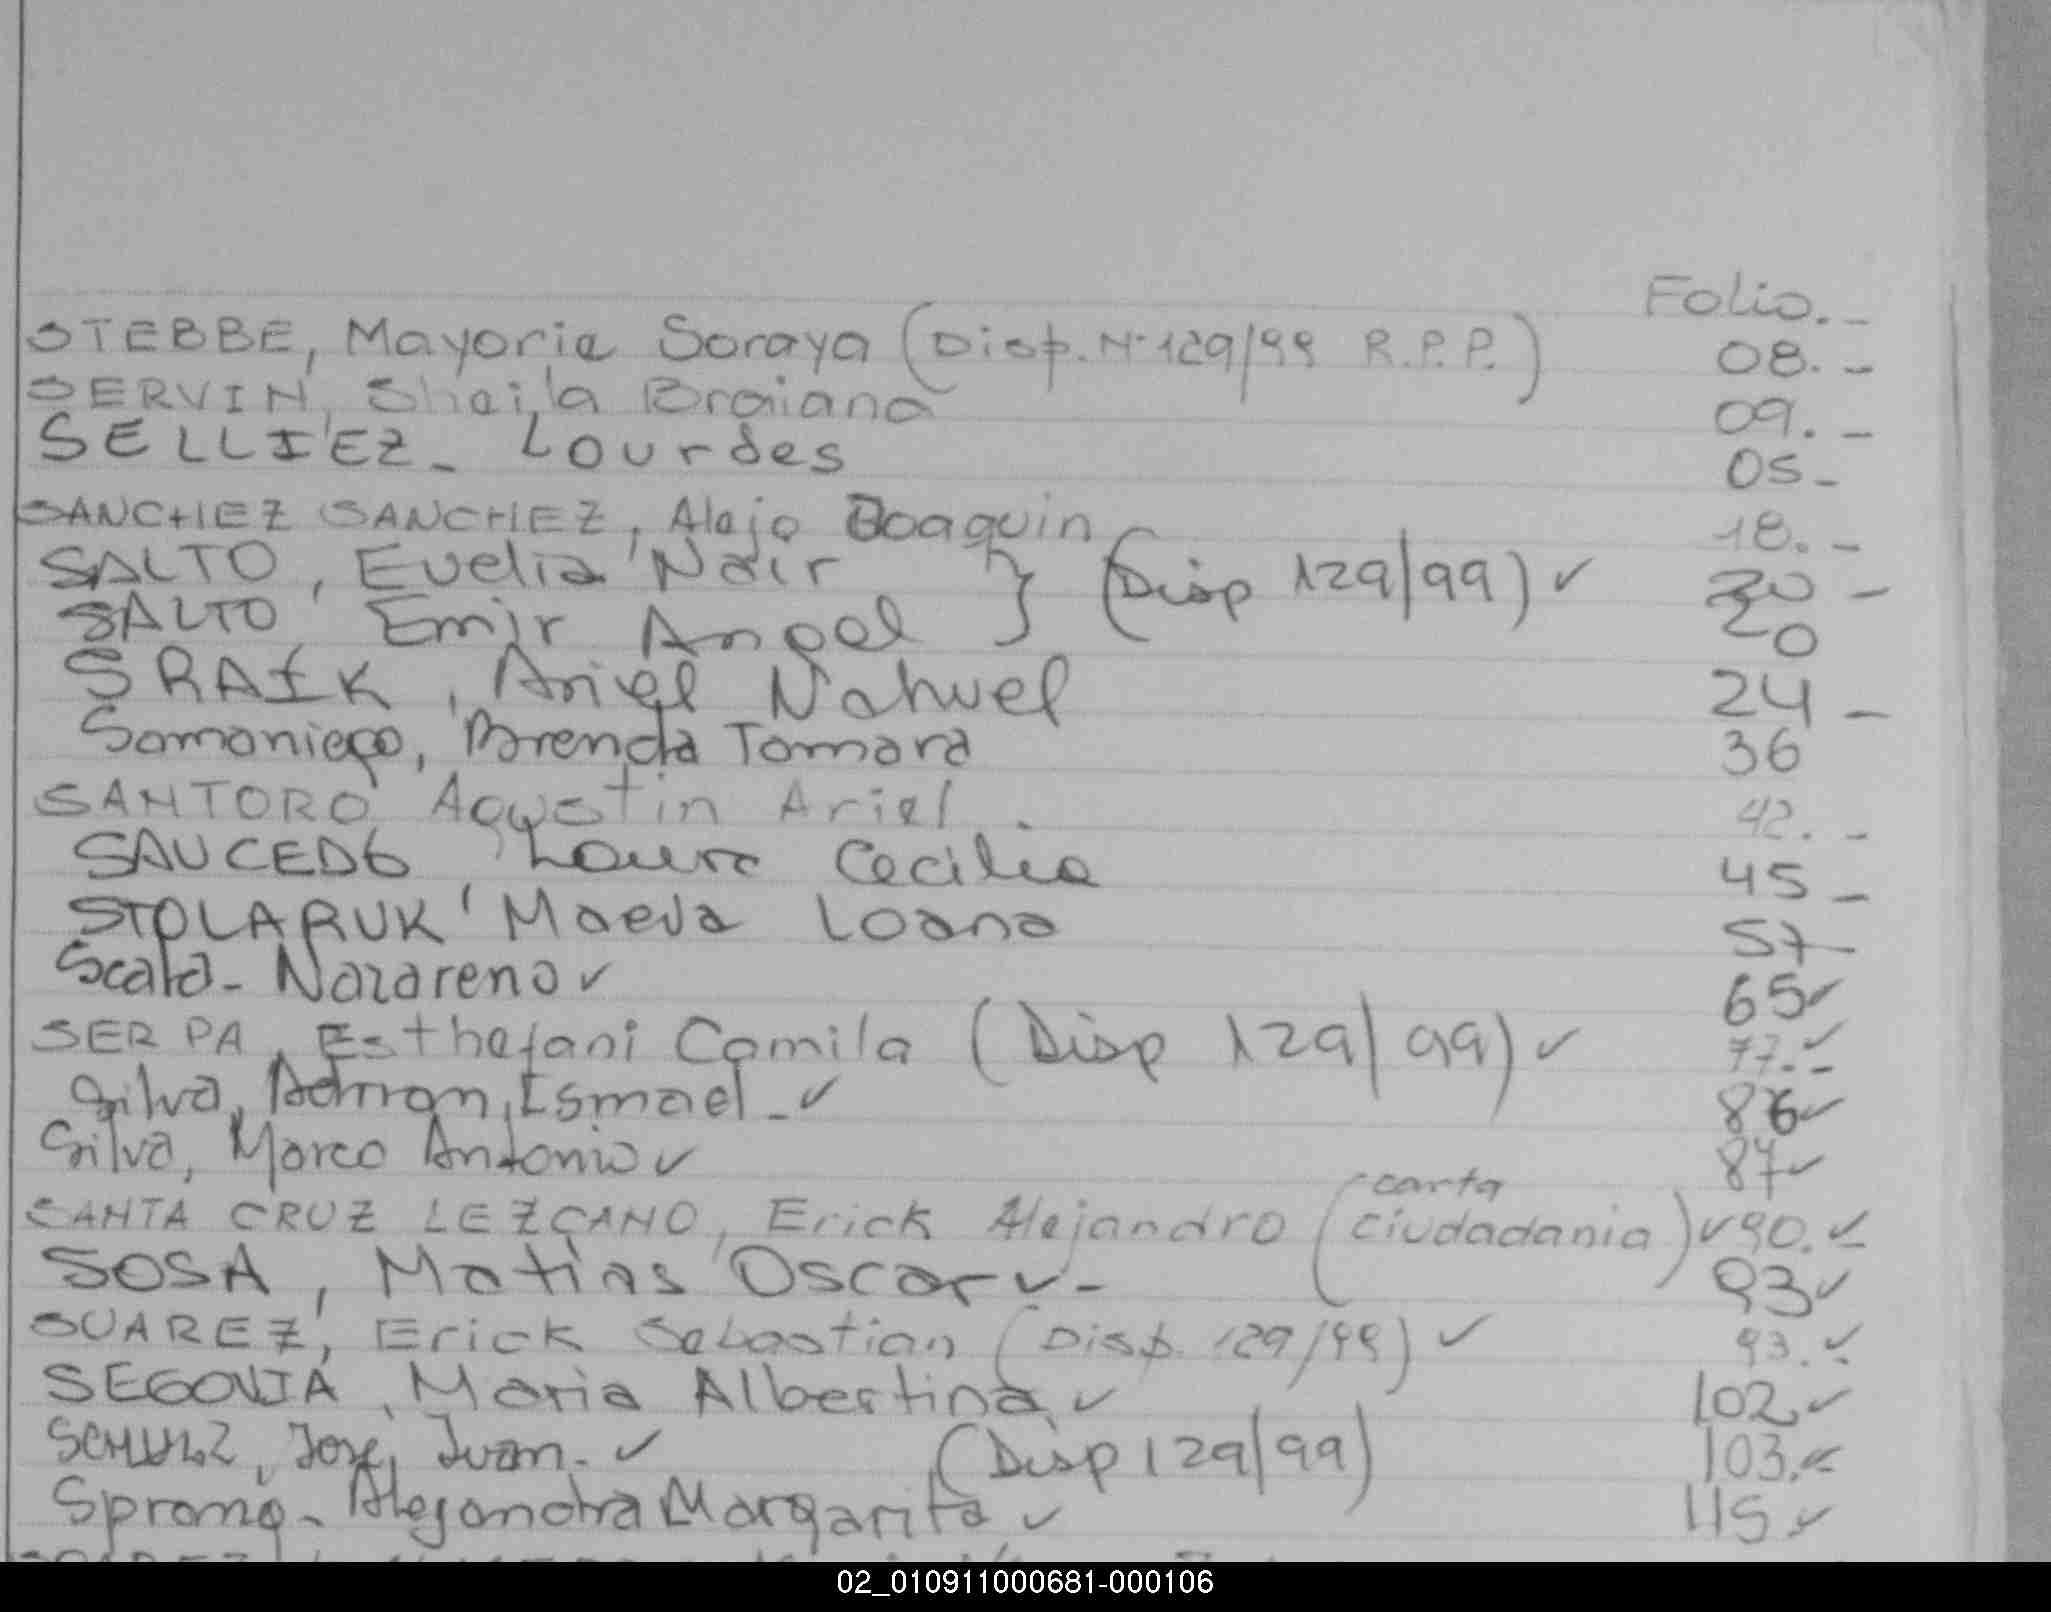 Folio. _
STEBBE, Mayorie Soraya (Disp. Nº 129/99 R.P.P.) 08. -
SERVIN, Sheila Braiana 09. -
SELLIEZ - Lourdes 05 -
SANCHEZ SANCHEZ, Alejo Joaquin 18. -
SALTO, Evelia Nair } (Disp 129/99) ✓ 20 -
SALTO, Emir Angel 20
SRAIK, Ariel Nahuel 24 -
Samaniego, Brenda Tamara 36
SANTORO, Agustin Ariel. 42. -
SAUCEDO, Laura Cecilia 45 -
STOLARUK, Maeva Loana 57 -
Scala - Nazareno ✓ 65 ✓
SERPA, Esthefani Camila (Disp 129/99) ✓ 77. - ✓
Silva, Adrian, Ismael - ✓ 86 ✓
Silva, Marco Antonio ✓ 87 ✓
SANTA CRUZ LEZCANO, Erick Alejandro (carta ciudadania) ✓ 90. ✓
SOSA, Matias Oscar ✓ - 93 ✓
SUAREZ, Erick Sebastian (Disp. 129/99) ✓ 93. ✓
SEGOVIA, Maria Albertina ✓ 102 ✓
SCHULZ, José, Juan. ✓ (Disp 129/99) 103. ✓
Sprang - Alejandra Margarita ✓ 115 ✓
02_010911000681-000106